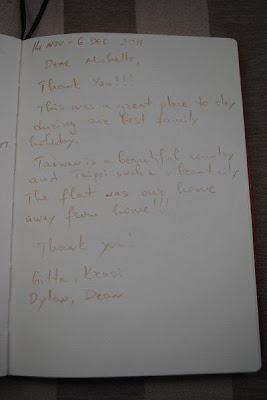 14 NOV - 6 DEC 2011
Dear Michelle,
Thank You!!!
This was a great place to stay
during our best family
holiday.
Taiwan is a beautiful country
and Taipei such a vibrant city
The flat was our home
away from home!!!
Thank you!
Gitta, Krasi
Dylan, Dean